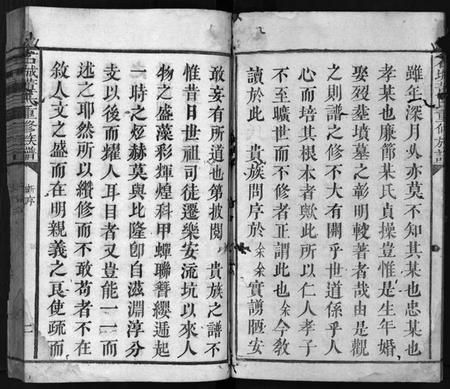 雖年深月久亦莫不知其某也忠某也
孝某也廉節某氏貞操豈惟是生年婚
娶歿塟墳墓之彰明較著者哉由是觀
之則譜之修不大有關乎世道係乎人
心而培其根本者歟此所以仁人孝子
一至於此也修譜者正謂此也余今敎
讀於此 貴族問序於余余實謭陋安
敢妄有所道也第披閱 貴族之譜不
惟昔日世祖司徒遷樂安流坑以來人
物之盛藻彩輝煌科甲蟬聯簪纓遞起
一時之烜赫莫與比隆卽自滋淵淳分
支以後而耀人耳目者又豈能一一而
述之耶然所以纘修而不敢苟者不在
敘人文之盛而在明親義之良使疏而
石城 氏重修族譜
新序
二